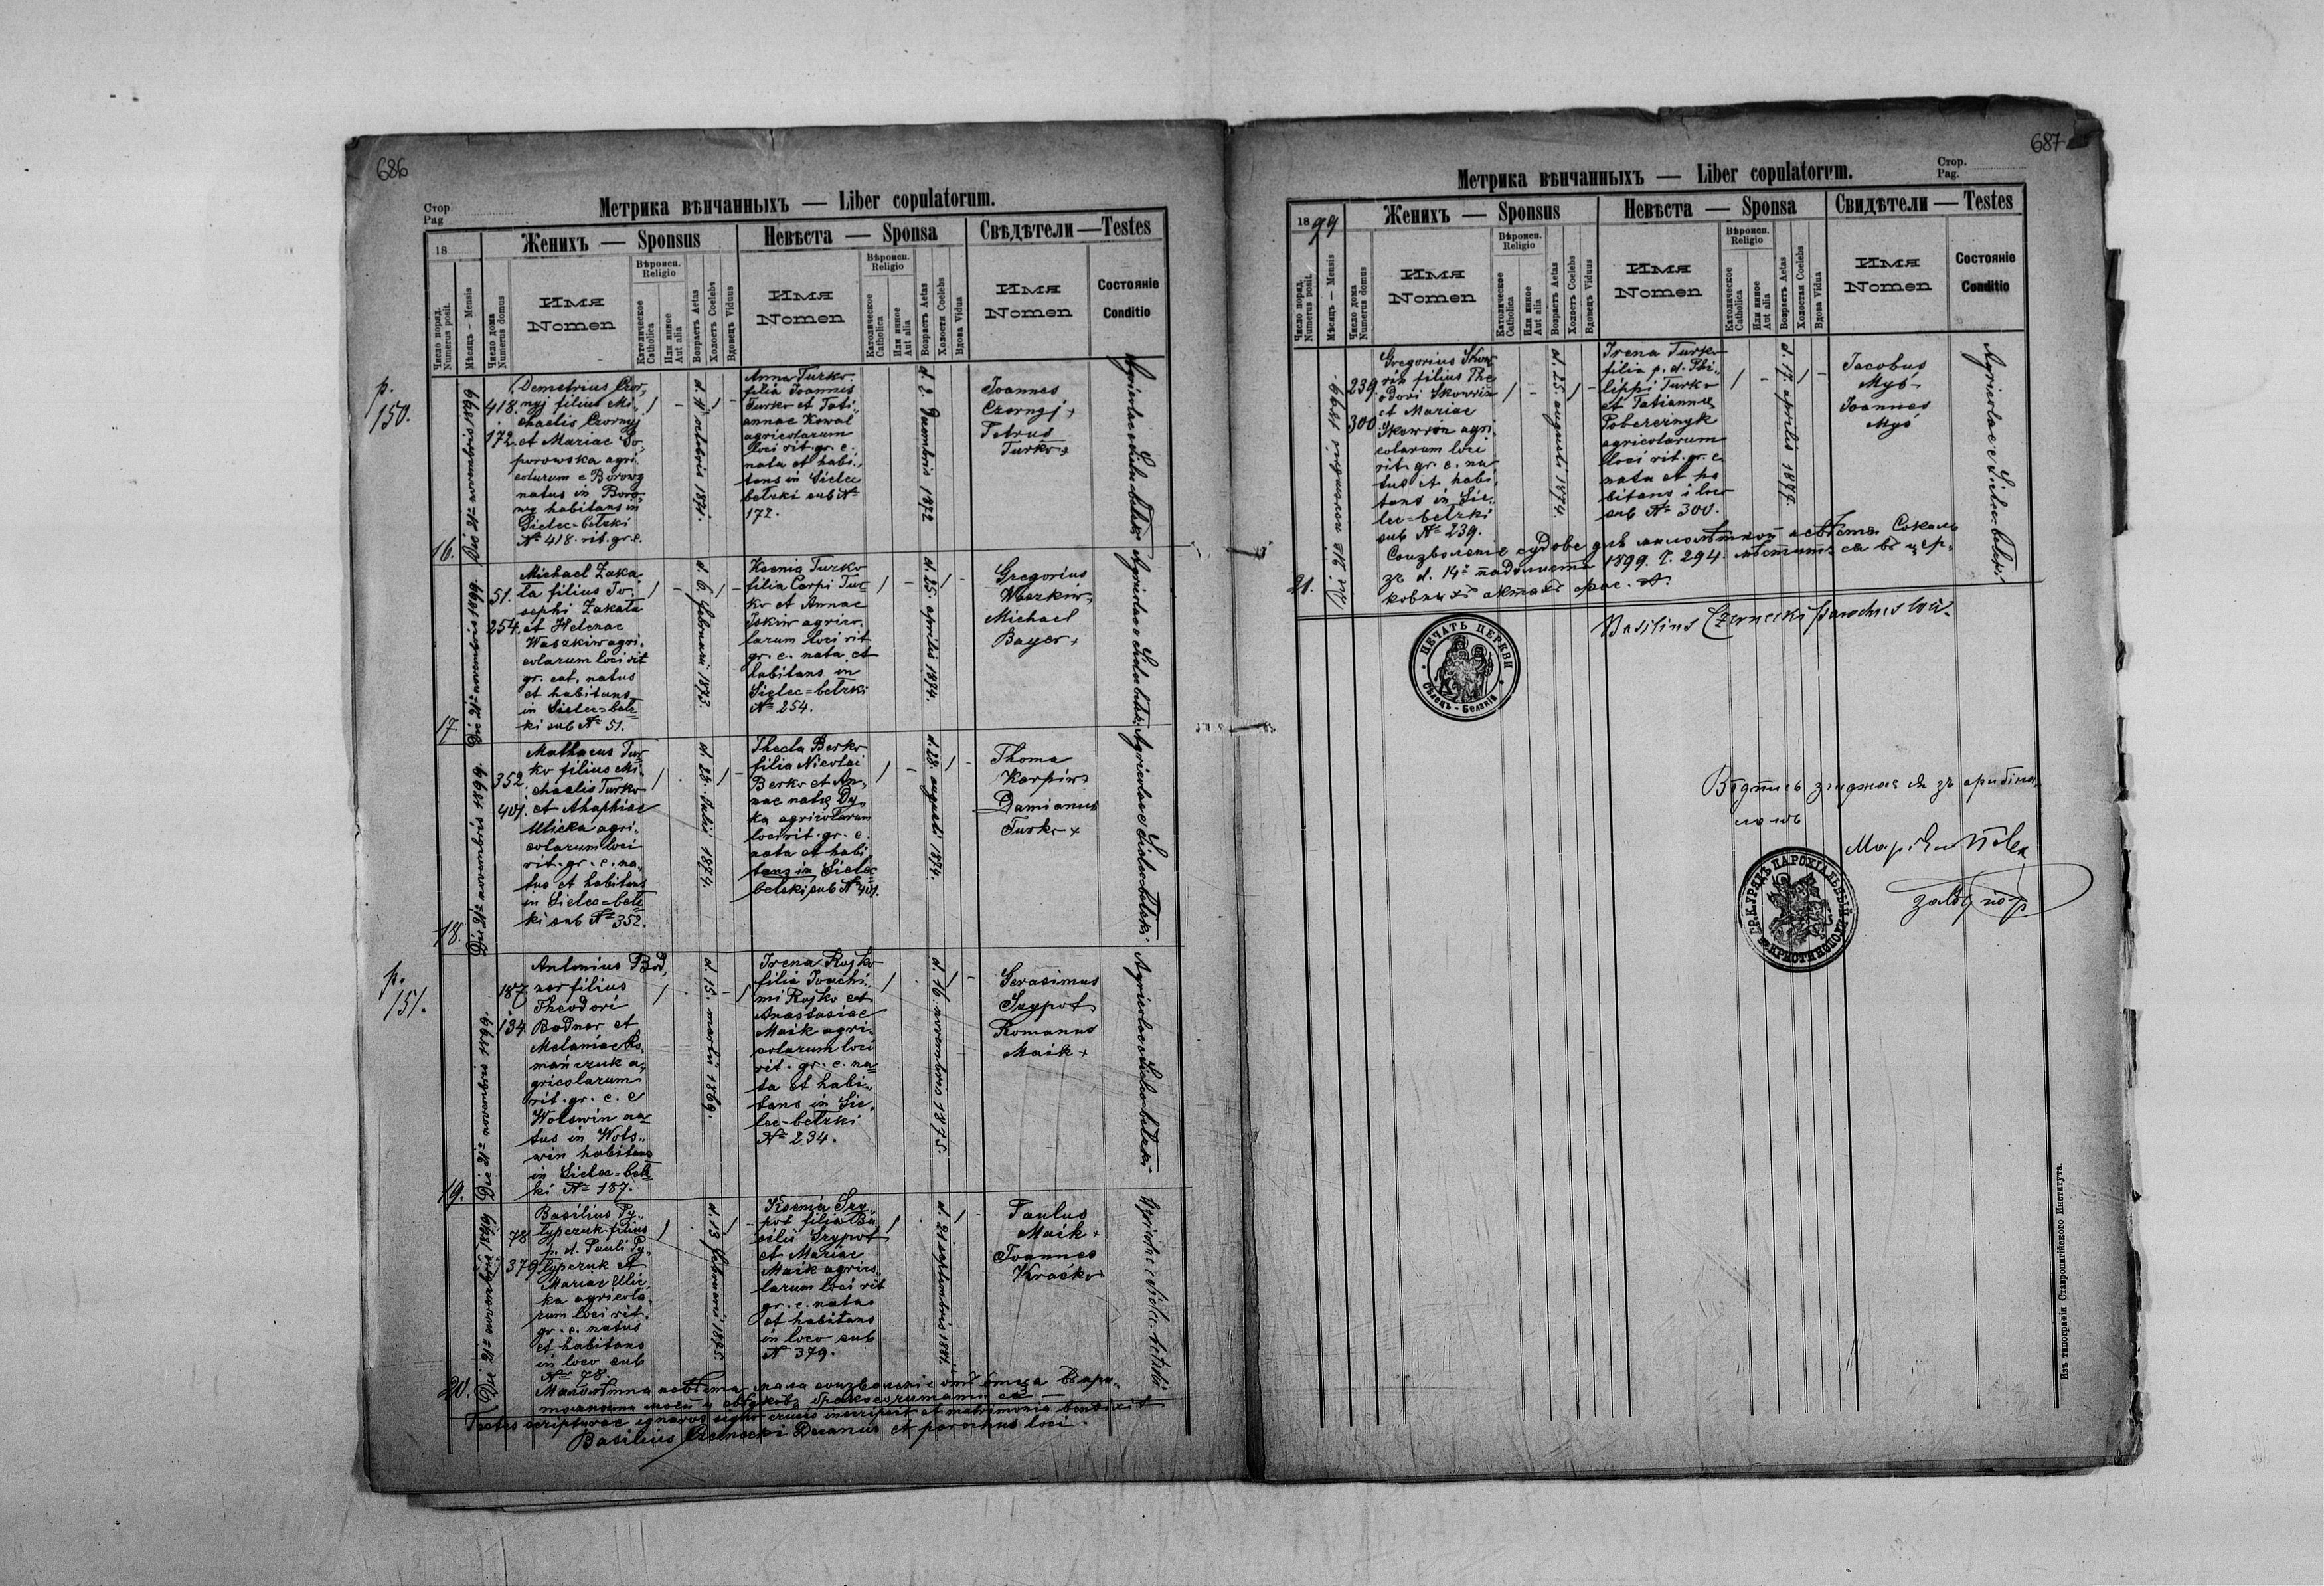 686
Стор.
Pag
Метрика вѣнчанныхъ — Liber copulatorum.
18
Женихъ — Sponsus
Невѣста — Sponsa
Свѣдѣтели—Testes
Число поряд.
Numerus posit.
Мѣсяцъ — Mensis
Число дома
Numerus domus
Имя
Nomen
Вѣроисп.
Religio
Католическое
Catholica
Или инное
Aut alia
Возрастъ Aetas
Холостъ Coelebs
Вдовецъ Viduus
Имя
Nomen
Вѣроисп.
Religio
Католическое
Catholica
Или инное
Aut alia
Возрастъ Aetas
Холоста Coelebs
Вдова Vidua
Имя
Nomen
Состояніе
Conditio
p.
150.
16.
Die 21 novembris 1899
418.
172.
Demetrius Czor„
nyj filius Mi„
chaelis Czornyj
et Mariae
porowska agri„
colarum e Borowy
natus in Boro„
wy habitans in
Sielec=bełzki
№ 418. rit. gr. c.
1871.
Anna Turko
filia Joannis
Turko et Tati„
annae Kowal
agricolarum
loci rit. gr. c.
nata et habi„
tans in Sielec
bełzki sub №
172.
1872
Joannes
Czornyj +
Petrus
Turko +
Agricolae e Sielec bełzki
17
Die 21 novembris 1899.
51.
254.
Michael Zaka„
ta filius Jo„
sephi Zakata
et Helenae
Waszkiw agri„
colarum loci rit
gr. cat. natus
et habitans
in Sielec=bełz
ki sub № 51.
d. 6. februarii 1873.
Ksenia Turko
filia Carpi Tur
ko et Annae
Iskiw agrico„
larum loci rit
gr. c. nata et
habitans in
Sielec=bełzki
№ 254.
d. 25. aprilis 1874.
Gregorius
Waszkiw
Michael
Bayer +
Agricolae e Sielec bełzki
18.
Die 21 novembris 1899.
352.
401.
Mathaeus Tur
ko filius Mi„
chaelis Turko
et Ahaphiae
Ulicka agri„
colarum loci
rit. gr. c. na„
tus et habitans
in Sielec=bełz
ki sub № 352.
d 23. Julii 1874.
Thecla Berko
filia Nicolai
Berko et An„
nae natę Dy„
ka agricolarum
loci rit. gr. c.
nata et habi
tans in Sielec
bełzki sub № 401.
d. 28. augusti 1874.
Thoma
Karpiw
Damianus
Turko +
Agricolae e Sielec bełzki
p.
151.
19.
Die 21 novembris 1899.
187.
134.
Antonius Bod„
nar filius
Theodori
Bodnar et
Melaniae Ro„
mańczuk a„
gricolarum
rit. gr. c. e
Wolswin na„
tus in Wols„
win habitans
in Sielec=bełz
ki № 187.
d. 15. martii 1869.
Irena Rojko
filia Joachi„
mi Rojko et
Anastasiae
Maik agri„
colarum loci
rit. gr. c. na„
ta et habi„
tans in Sie„
lec=bełzki
№ 234.
d. 16. novembris 1875.
Gerasimus
Szypot
Romanus
Maik +
Agricolae e Sielec bełzki
20.
Die 21 novembris 1899
78
379
Basilius Py„
łypczuk filius
p. d. Pauli Py„
łypczuk et
Mariae Ulic„
ka agricola„
rum loci rit.
gr. c. natus
et habitans
in loco sub
№ 78.
d. 13 februarii 1875
Ksenia Szy„
pot filia Ba„
silii Szypot
et Mariae
Maik agrico„
larum loci rit
gr. c. nata
et habitans
in loco sub
№ 379.
d. 21 septembris 1881.
Paulus
Maik +
Joannes
Kraśko
Agricolae e Sielec bełzki
Малолѣтна невѣста мала соизволеніе отъ отца
Testes scripturae ignaros signo crucis inscripsit et matrimonia benedixit
Basilius Czernecki Decanus et parochus loci.
687
Метрика вѣнчанныхъ — Liber copulatorum.
Стор.
Pag.
1899
Женихъ — Sponsus
Невѣста — Sponsa
Свидѣтели — Testes
Число поряд.
Numerus posit.
Мѣсяцъ — Mensis
Число дома
Numerus domus
Имя
Nomen
Вѣроисп.
Religio
Католическое
Catholica
Или инное
Aut alia
Возрастъ Aetas
Холостъ Coelebs
Вдовецъ Viduus
Имя
Nomen
Вѣроисп.
Religio
Католическое
Catholica
Или инное
Aut alia
Возрастъ Aetas
Холостая Coelebs
Вдова Vidua
Имя
Nomen
Состояніе
Conditio
21.
Die 21 novembris 1899.
239.
300
Gregorius Skow
ron filius The
odori Skowron
et Mariae
Skowron agri„
colarum loci
rit. gr. c. na„
tus et habi„
tans in Sie„
lec=bełzki
sub № 239.
d. 25. augusti 1874.
Irena Turko
filia p. d. Phi„
lippi Turko
et Tatiannae
Pobereznyk
agricolarum
loci rit. gr. c.
nata et ha
bitans in loco
sub № 300.
d. 17. aprilis
Jacobus
Myś
Joannes
Myś
Agricolae e Sielec bełzki
Соизволеніе судове для малолѣтной невѣсты Сокаль
зъ д. 14 падолиста 1899. Ч. 294. мѣститъ ся въ цер„
ковныхъ актахъ фас. А.
Basilius Czernecki parochus loci
ПЕЧАТЬ ЦЕРКВИ
Сѣлець - Белзкій
Відпись згаджає ся зъ оригіна„
ломъ
ГР. К. УРЯДЪ ПАРОХІАЛЬНЫЙ
Изъ типографіи Ставропигійского Института.